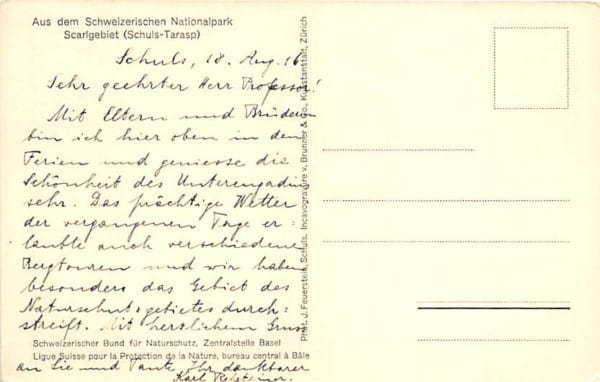 Aus dem Schweizerischen Nationalpark
Scarlgebiet (Schuls-Tarasp)
Schuls, 18. Aug. 16.
Sehr geehrter Herr Professor!
Mit Eltern und Brüdern
bin ich hier oben in den
Ferien und geniesse die
Schönheit des Unterengadin
sehr. Das prächtige Wetter
der vergangenen Tage er-
laubte auch verschiedene
Bergtouren und wir haben
besonders das Gebiet des
Naturschutzgebietes durch-
streift. Mit herzlichem Gruss
Schweizerischer Bund für Naturschutz, Zentralstelle Basel
Ligue Suisse pour la Protection de la Nature, bureau central à Bâle
an Sie und Tante, Ihr dankbarer
Karl
Phot. J. Feuerstein, Schuls. Incavogravure v. Brunner & Co., Kunstanstalt, Zürich